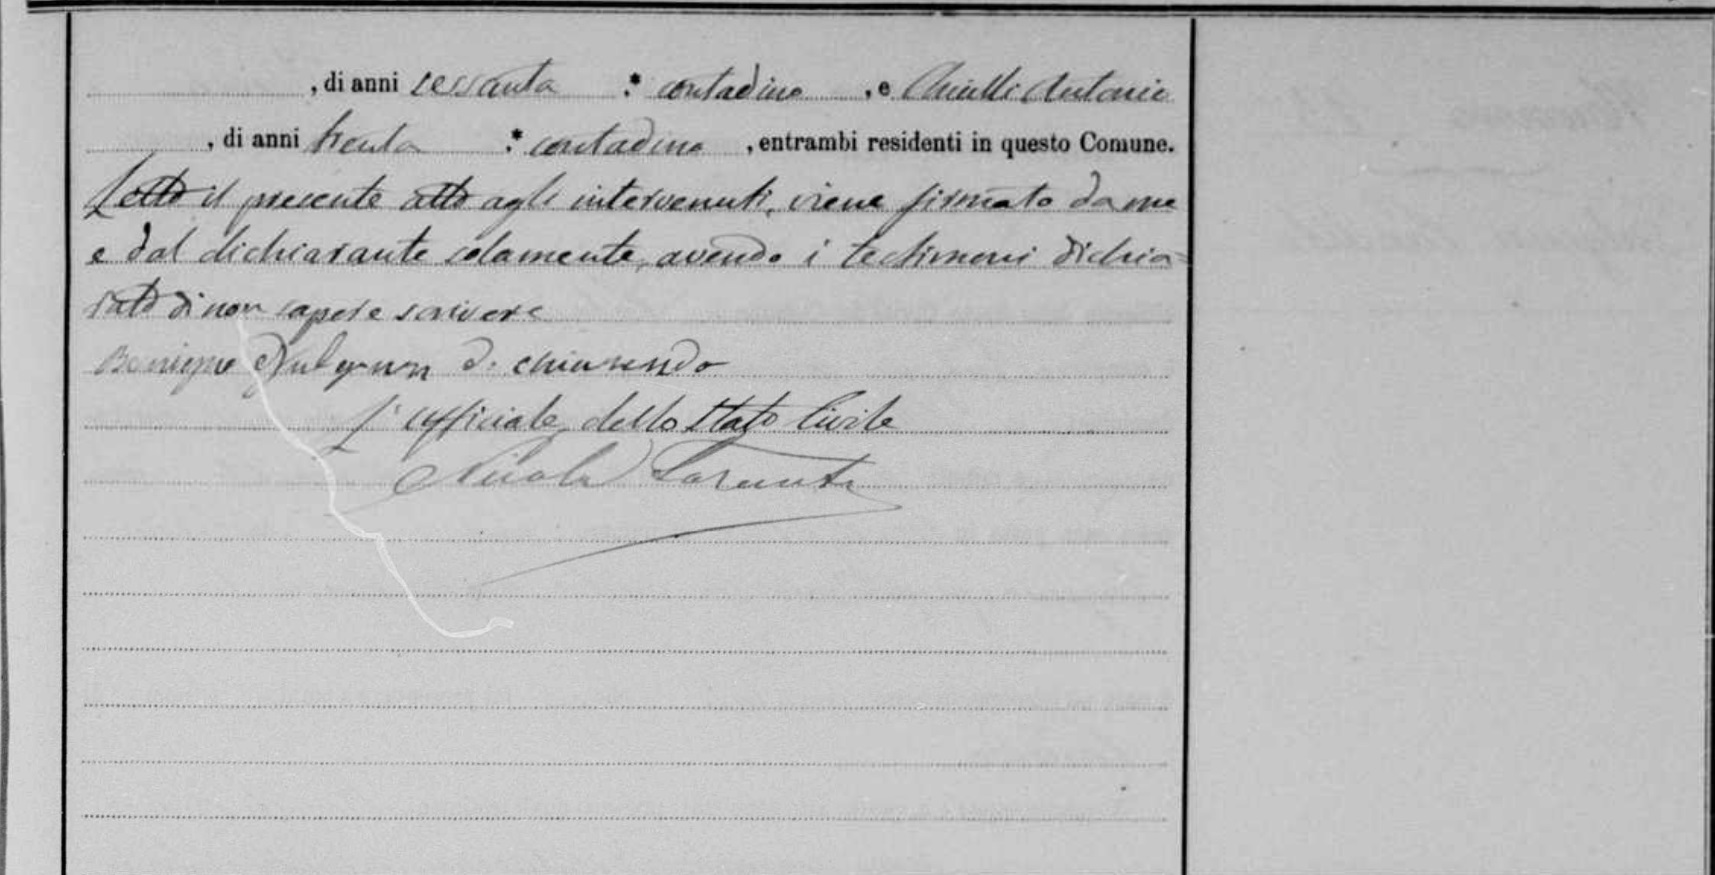 , di anni sessanta : contadino , e Chiulli Antonio
, di anni trenta : contadino , entrambi residenti in questo Comune.
Letto il presente atto agli intervenuti, viene firmato da me
e dal dichiarante solamente, avendo i testimoni dichia=
rato di non sapere scrivere
dichiarendo
L'ufficiale dello Stato Civile
Nicola